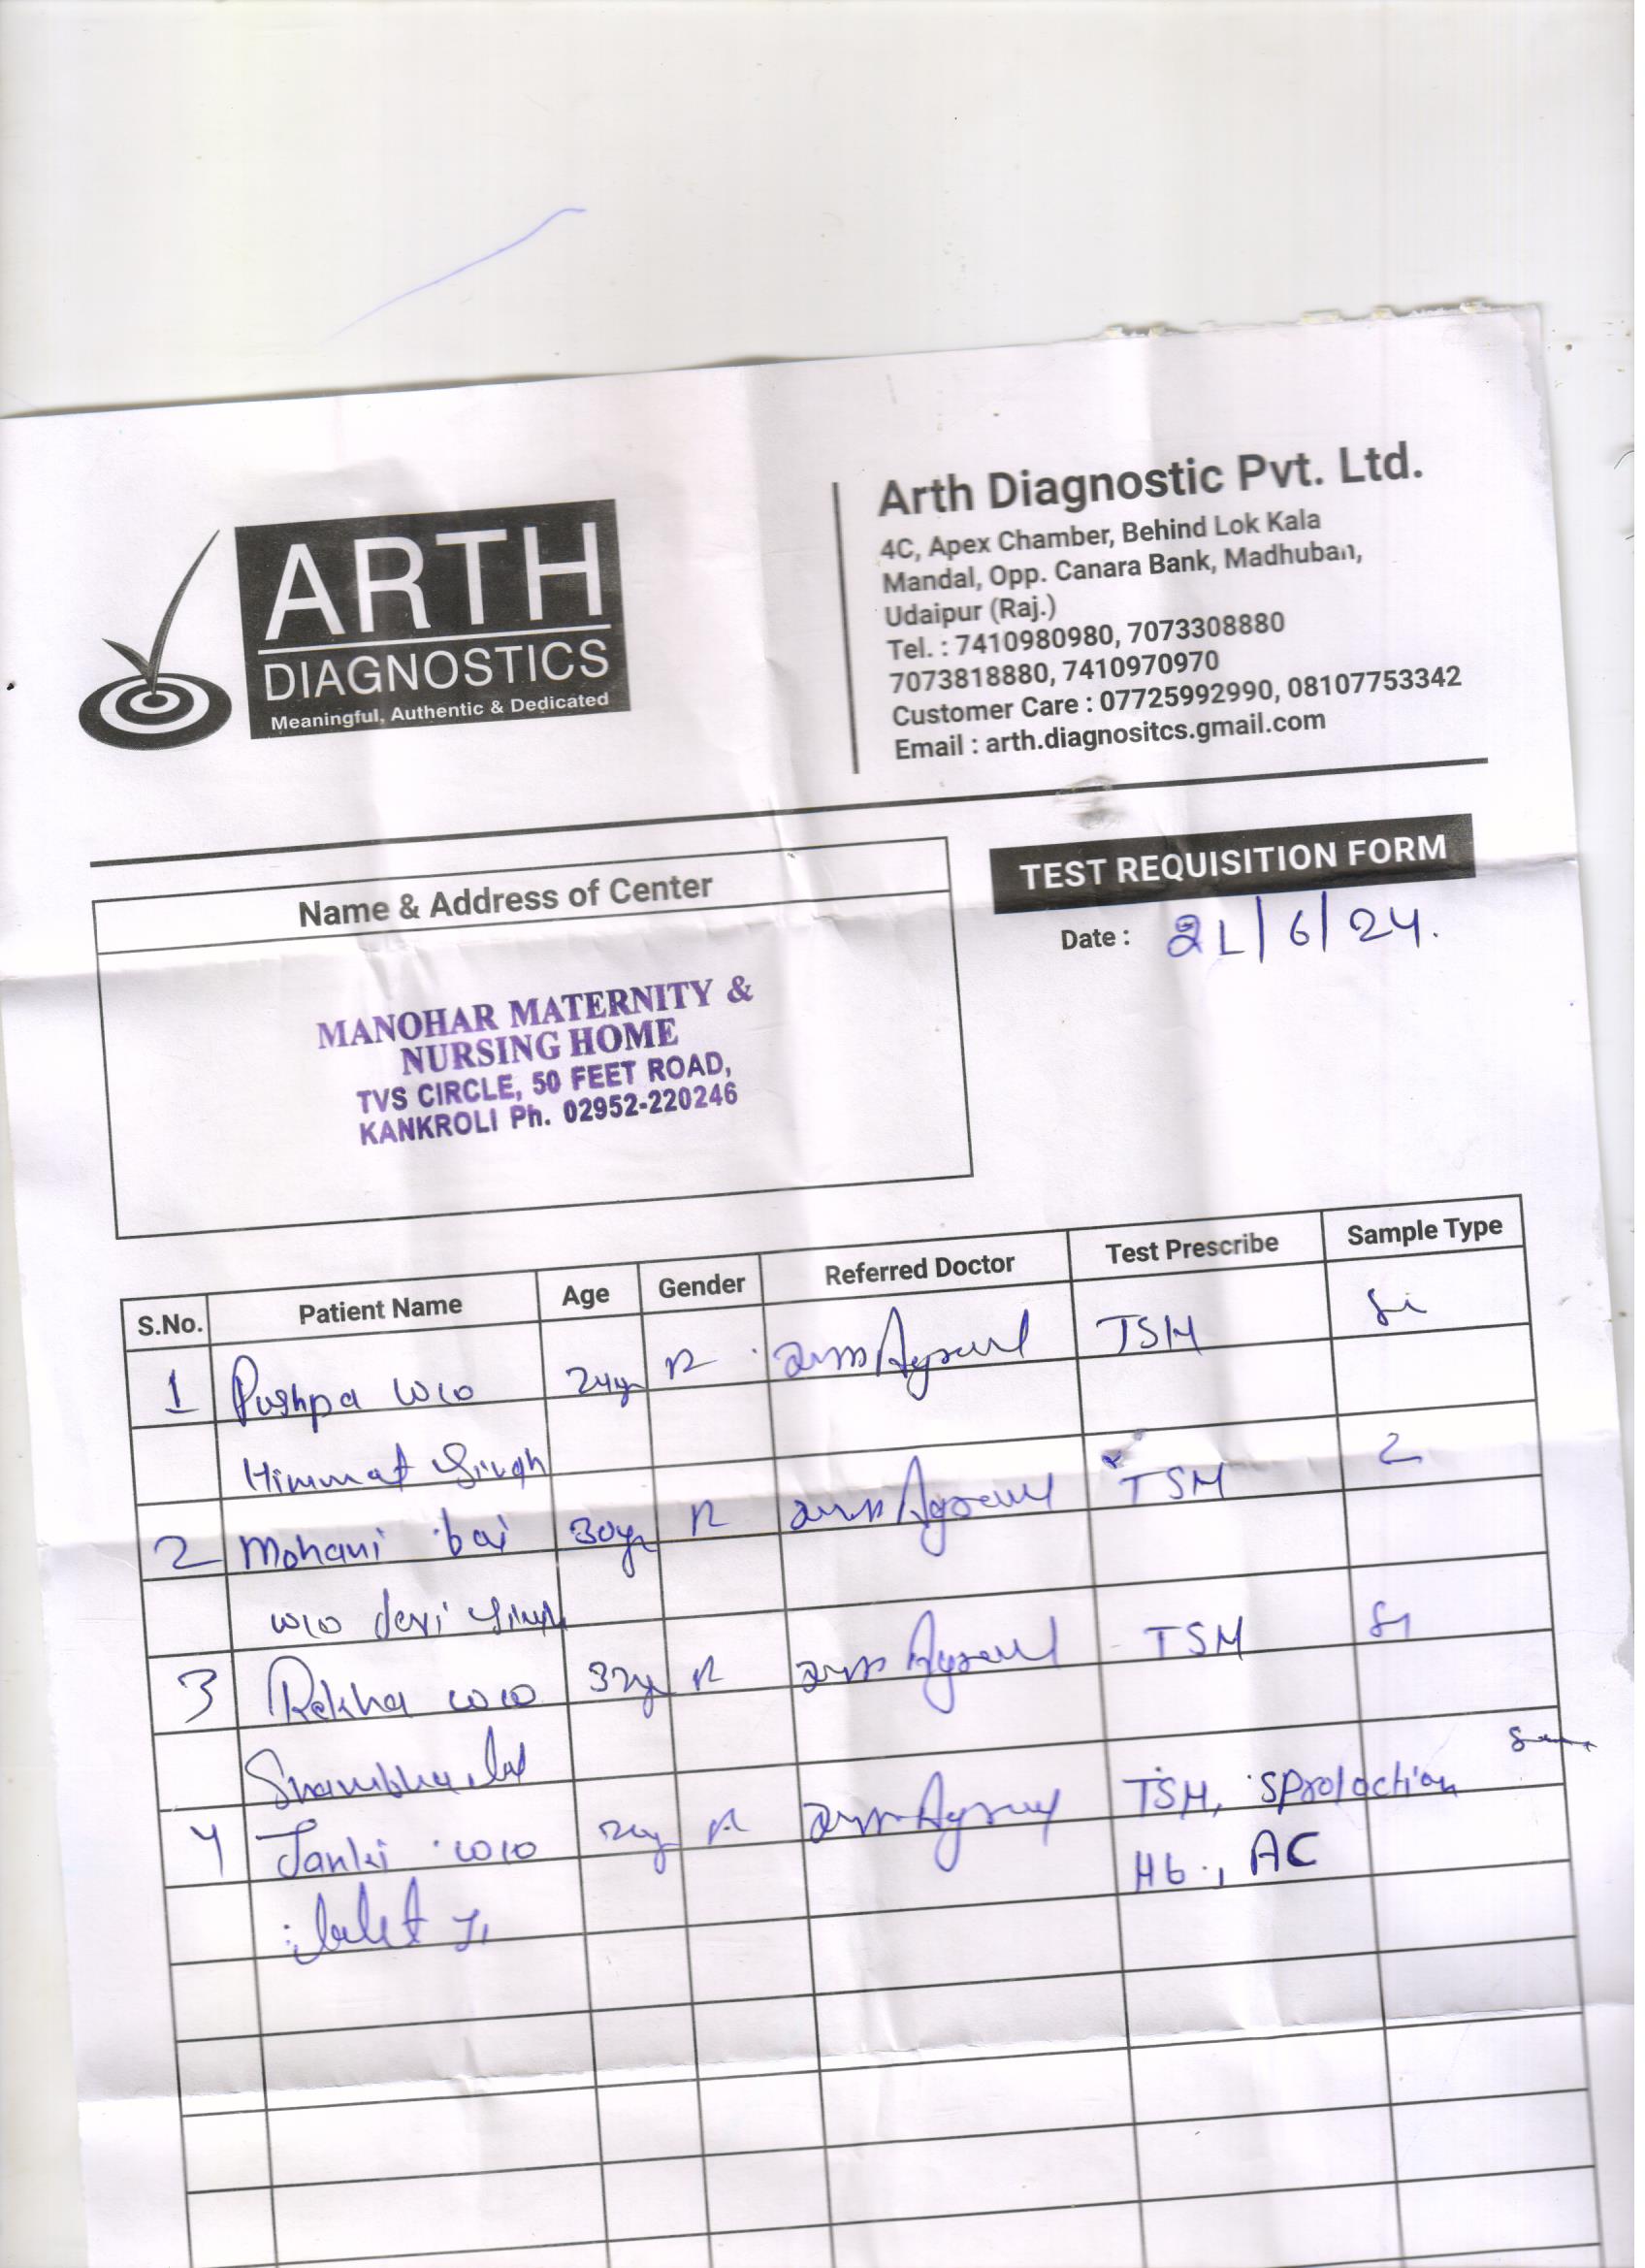 ARTH
DIAGNOSTICS
Meaningful, Authentic & Dedicated
Arth Diagnostic Pvt. Ltd.
4C, Apex Chamber, Behind Lok Kala
Mandal, Opp. Canara Bank, Madhuban,
Udaipur (Raj.)
Tel. : 7410980980, 7073308880
7073818880, 7410970970
Customer Care : 07725992990, 08107753342
Email : arth.diagnositcs.gmail.com
Name & Address of Center
TEST REQUISITION FORM
Date : 21/6/24.
MANOHAR MATERNITY &
NURSING HOME
TVS CIRCLE, 50 FEET ROAD,
KANKROLI Ph. 02952-220246
S.No. Patient Name Age Gender Referred Doctor Test Prescribe Sample Type
1 Pushpa w/o 24yr TSH
Himmat Singh
2 Mohani bai 30yr TSH
w/o devi Singh
3 Rekha w/o 32yr TSH
Shambhu lal
4 Janki w/o TSH, SProlactian
Hb., AC